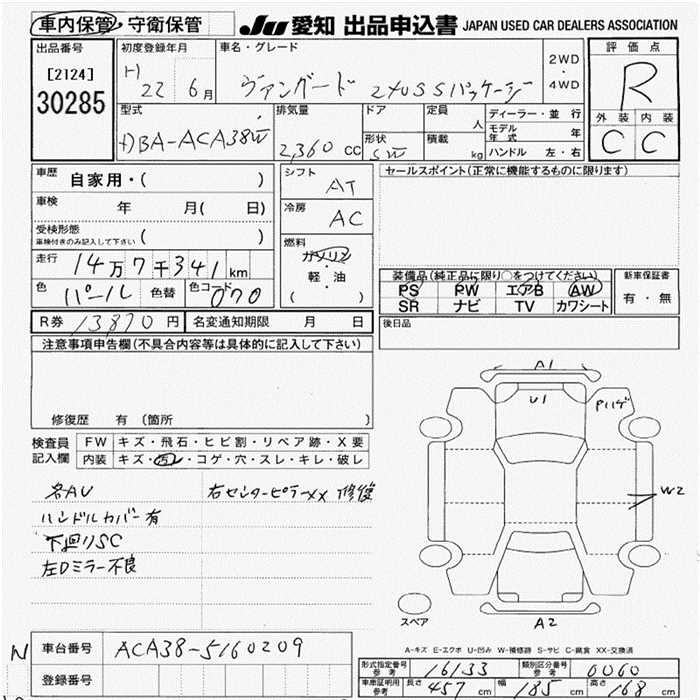 車内保管・守衛保管 JU 愛知 出品申込書 JAPAN USED CAR DEALERS ASSOCIATION
出品番号 初度登録年月 車名・グレード 評価点
[2124] H 22 6月 ヴァンガード 240S Sパッケージ 2WD・4WD R
30285
型式 排気量 ドア 定員 人 ディーラー・並行 外装 内装
DBA-ACA38W 2,360 cc 形状 5W 積載 kg モデル年式 年 C C
ハンドル 左・右
車歴 自家用・( ) シフト AT セールスポイント(正常に機能するものに限ります)
車検 年 月( 日) 冷房 AC
受検形態 車検付きのみ記入して下さい ( ) 燃料 ガソリン
走行 14万7千341km 軽・油
色 パール 色替 色コード 070 ( )
装備品(純正品に限り○をつけてください) 新車保証書
PS PW エアB AW 有・無
SR ナビ TV カワシート
R券 13870円 名変通知期限 月 日 後日品
注意事項申告欄(不具合内容等は具体的に記入して下さい)
修復歴 有 (箇所 )
検査員記入欄 FW キズ・飛石・ヒビ割・リペア跡・X要
内装 キズ・汚レ・コゲ・穴・スレ・キレ・破レ
A1
U1 Pハゲ
W2
A2
スペア
右センターピラーXX 修復
ハンドルカバー有
下廻りSC
左Dミラー不良
A-キズ E-エクボ U-凹み W-補修跡 S-サビ C-腐食 XX-交換済
N 車台番号 ACA38-5160209
登録番号
形式指定番号 参考 16133 類別区分番号 参考 0060
車庫証明用 参考 長さ 457 cm 幅 185 cm 高さ 168 cm